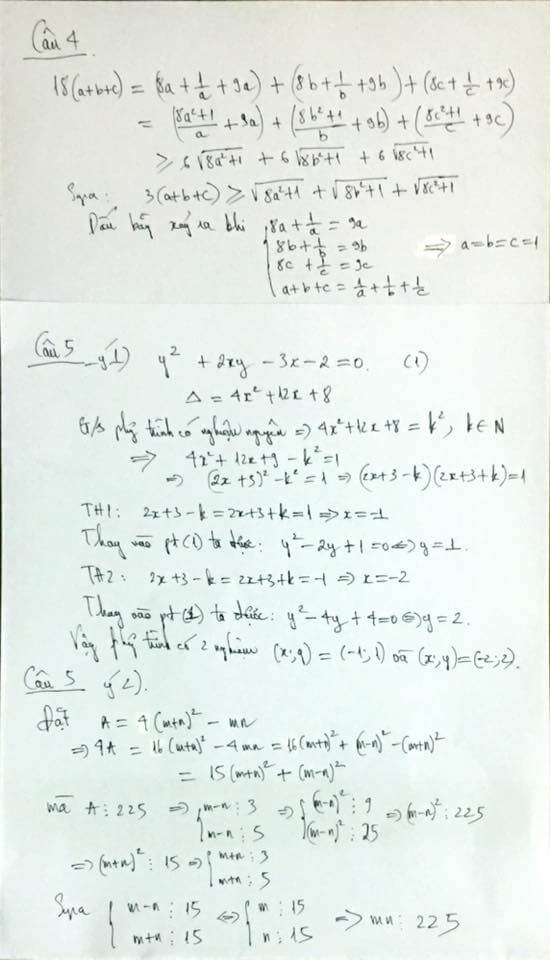 Câu 4
18(a+b+c) = (8a + 1/a + 9a) + (8b + 1/b + 9b) + (8c + 1/c + 9c)
= ((8a²+1)/a + 9a) + ((8b²+1)/b + 9b) + ((8c²+1)/c + 9c)
≥ 6√(8a²+1) + 6√(8b²+1) + 6√(8c²+1)
Suy ra: 3(a+b+c) ≥ √(8a²+1) + √(8b²+1) + √(8c²+1)
Dấu bằng xảy ra khi { 8a + 1/a = 9a
8b + 1/b = 9b ⇒ a=b=c=1
8c + 1/c = 9c
a+b+c = 1/a + 1/b + 1/c
Câu 5 ý 1) y² + 2xy - 3x - 2 = 0. (1)
Δ = 4x² + 12x + 8
G/s phg trình có nghiệm nguyên ⇒ 4x² + 12x + 8 = k², k ∈ N
⇒ 4x² + 12x + 9 - k² = 1
⇒ (2x + 3)² - k² = 1 ⇒ (2x+3-k)(2x+3+k) = 1
TH1: 2x+3-k = 2x+3+k = 1 ⇒ x = -1
Thay vào pt (1) ta được: y² - 2y + 1 = 0 ⇔ y = 1.
TH2: 2x+3-k = 2x+3+k = -1 ⇒ x = -2
Thay vào pt (1) ta được: y² - 4y + 4 = 0 ⇔ y = 2.
Vậy phg trình có 2 nghiệm (x;y) = (-1;1) và (x;y) = (-2;2).
Câu 5 ý 2).
Đặt A = 4(m+n)² - mn
⇒ 4A = 16(m+n)² - 4mn = 16(m+n)² + (m-n)² - (m+n)²
= 15(m+n)² + (m-n)²
mà A ⋮ 225 ⇒ { m-n ⋮ 3 ⇒ { (m-n)² ⋮ 9 ⇒ (m-n)² ⋮ 225
m-n ⋮ 5 (m-n)² ⋮ 25
⇒ (m+n)² ⋮ 15 ⇒ { m+n ⋮ 3
m+n ⋮ 5
Suy ra { m-n ⋮ 15 ⇔ { m ⋮ 15 ⇒ mn ⋮ 225
m+n ⋮ 15 n ⋮ 15